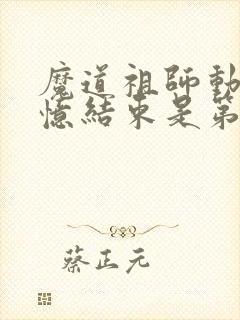 魔道祖師動
憶結束是第
蔡正元